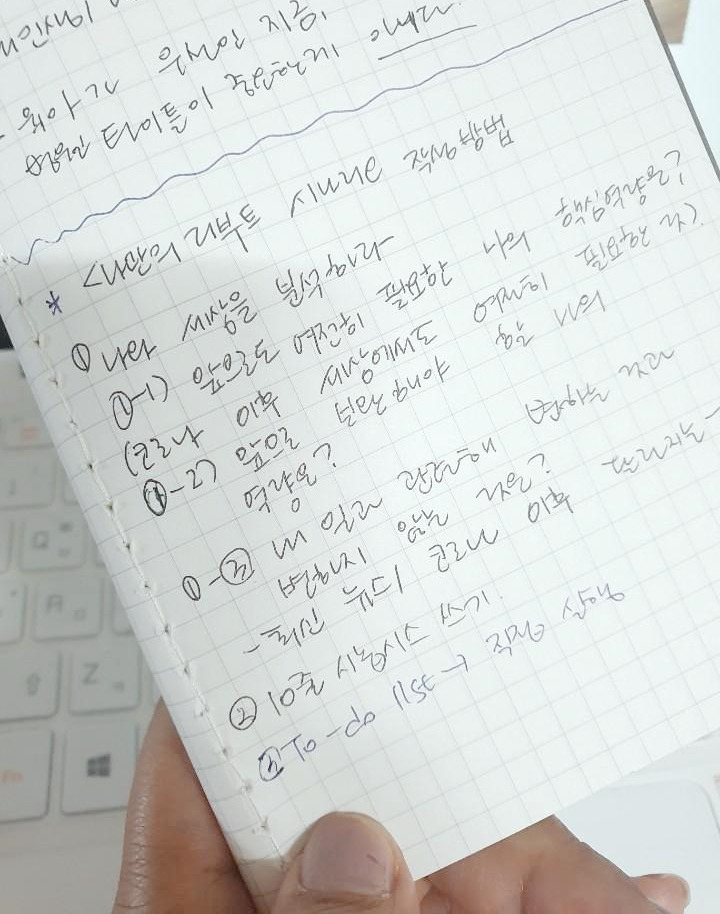 육아가 우선인 지금,
영원한 타이틀이 중요한게 아니다.
* <나만의 리부트 시나리오 작성방법
① 나와 세상을 분석하라
①-1) 앞으로도 여전히 필요한 나의 핵심역량은?
(코로나 이후 세상에서도 여전히 필요한 것).
①-2) 앞으로 보완해야 할 나의
역량은?
①-③ 내 일과 관련해 변하는 것과
변하지 않는 것은?
- 최근 뉴스 코로나 이후 달라지는 -
② 10줄 시놉시스 쓰기.
③ To-do list → 작성 실행
Q
A
Z
Fn